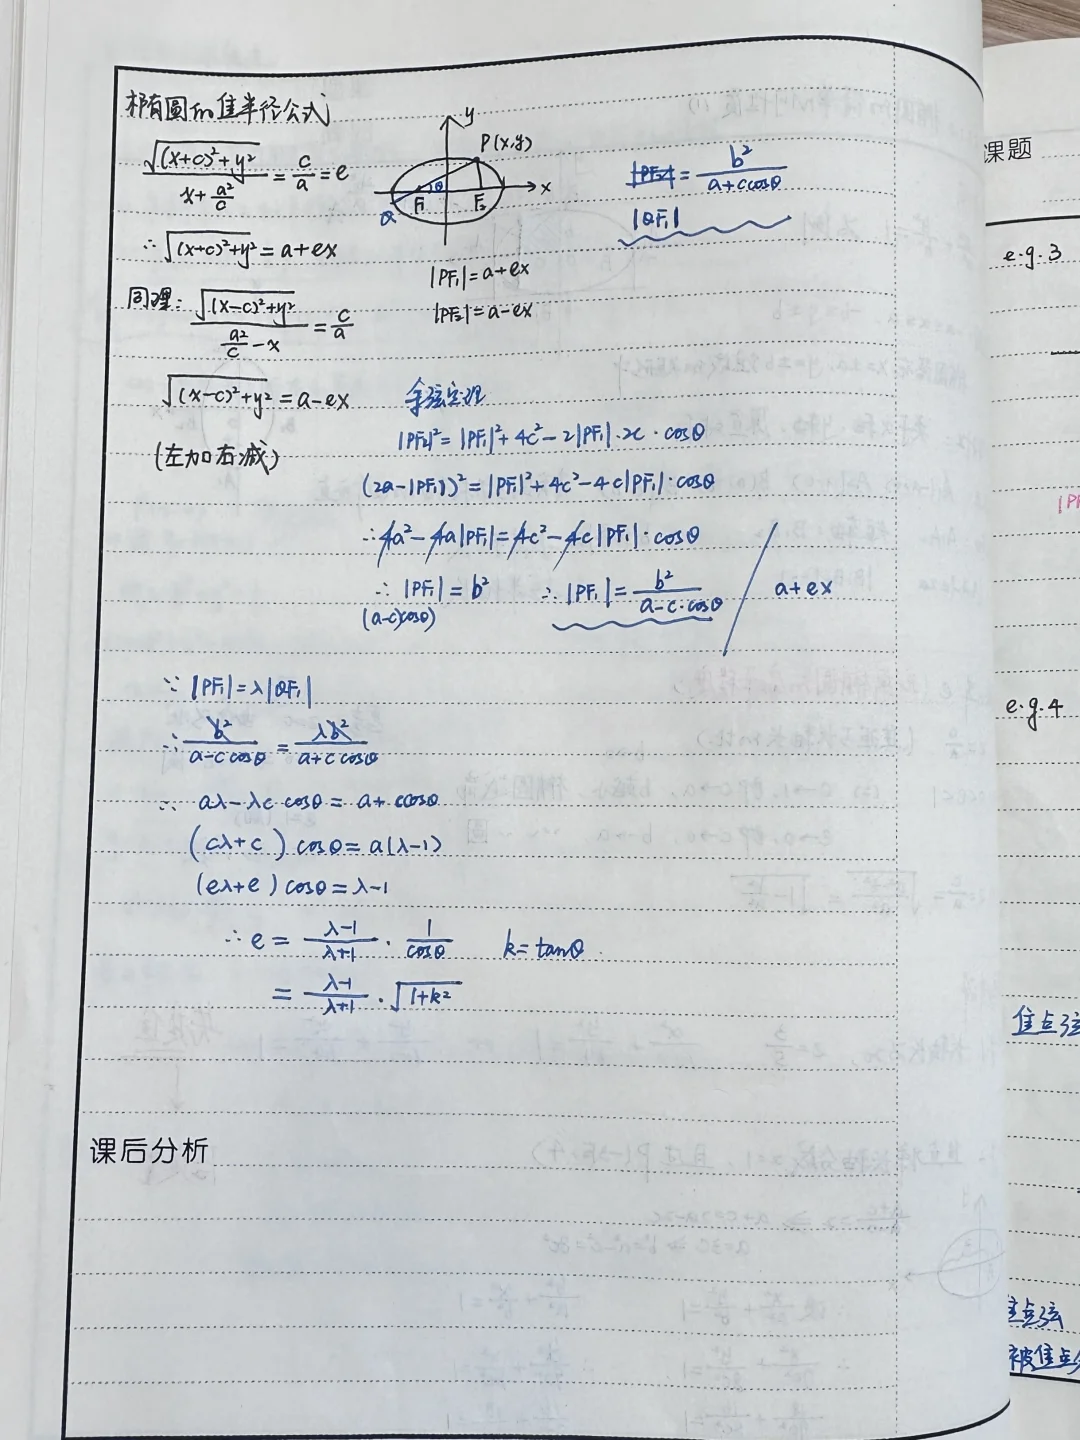 椭圆的焦半径公式
√((x+c)²+y²) / (x+a²/c) = c/a = e
∴ √((x+c)²+y²) = a+ex
同理: √((x-c)²+y²) / (a²/c - x) = c/a
√((x-c)²+y²) = a-ex
(左加右减)
y
P(x,y)
x
θ
Q
F₁
F₂
|PF₁|=a+ex
|PF₂|=a-ex
= b²/(a+ccosθ)
|QF₁|
余弦定理
|PF₂|²=|PF₁|²+4c²-2|PF₁|·2c·cosθ
(2a-|PF₁|)²=|PF₁|²+4c²-4c|PF₁|·cosθ
∴4a²-4a|PF₁|=4c²-4c|PF₁|·cosθ
∴ |PF₁|=b² ∴|PF₁|= b²/(a-c·cosθ) / a+ex
(a-c)cosθ)
∵|PF₁|=λ|QF₁|
∴ b²/(a-ccosθ) = λb²/(a+ccosθ)
∴ aλ-λc cosθ=a+ccosθ
(cλ+c) cosθ=a(λ-1)
(eλ+e)cosθ=λ-1
∴ e = (λ-1)/(λ+1) · 1/cosθ k=tanθ.
= (λ-1)/(λ+1) · √(1+k²)
课后分析
课题
e.g.3
e.g.4
焦点弦
焦点弦
被焦点